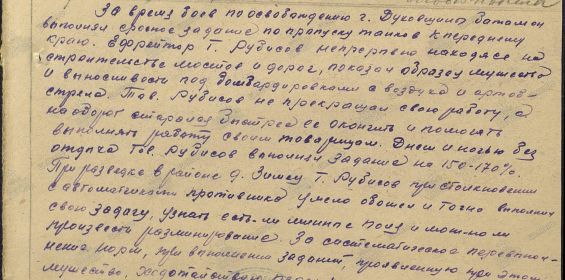 За время боев по освобождению г. Духовщины батальон
выполнял срочное задание по пропуску танков к переднему
краю. Ефрейтор т. Рубисов непрерывно находясь на
строительстве мостов и дорог, показал образец мужества
и выносливости под бомбардировками с воздуха и артоб-
стрела. Тов. Рубисов не прекращал свою работу, а
наоборот старался быстрее ее окончить и помогать
выполнять работу своим товарищам. Днем и ночью без
отдыха тов. Рубисов выполнял задание на 150-170%.
При разведке в районе д. Зимец т. Рубисов при столкновении
с автоматчиками противника умело обошел и точно выполнил
свою задачу, узнать есть-ли минные поля и мож-но ли
произвести разминирование. За систематическое перевыпол-
нение норм, при выполнении заданий, проявленную при этом
мужество, ходатайствую